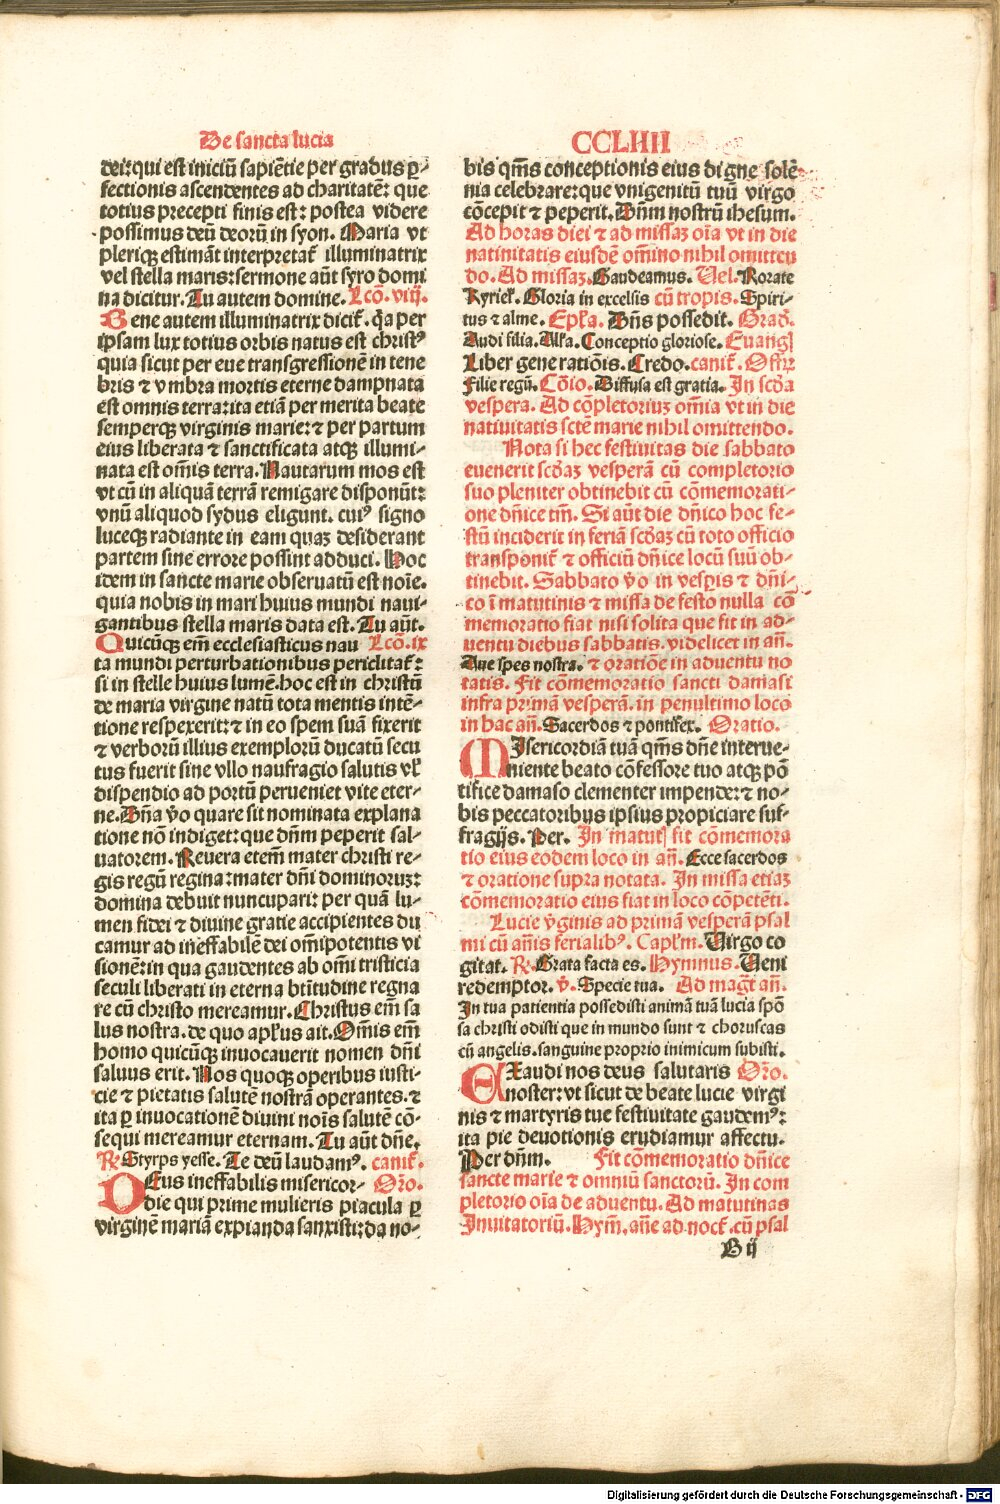 De sancta lucia
CCLIIII
dei: qui est iniciū sapiētie per gradus ꝑ-
fectionis ascendentes ad charitatē: que
totius precepti finis est: postea videre
possimus deū deorū in syon. Maria vt
pleriqꝫ estimāt interpretat᷑ illuminatrix
vel stella maris: sermone aūt syro domi
na dicitur. Tu autem domine. Lcō. viij.
Bene autem illuminatrix dicit᷑. q̄a per
ip̄sam lux totius orbis natus est christꝰ
quia sicut per eue transgressionē in tene
bris ⁊ vmbra mortis eterne dampnata
est omnis terra: ita etiā per merita beate
semperqꝫ virginis marie: ⁊ per partum
eius liberata ⁊ sanctificata atqꝫ illumi-
nata est om̄is terra. Nautarum mos est
vt cū in aliquā terrā remigare disponūt:
vnū aliquod sydus eligunt. cuiꝰ signo
luceqꝫ radiante in eam quaꝫ desiderant
partem sine errore possint adduci. Hoc
idem in sancte marie obseruatū est noīe.
quia nobis in mari huius mundi naui-
gantibus stella maris data est. Tu aūt.
Quicūqꝫ em̄ ecclesiasticus nau Lcō. ix
ta mundi perturbationibus periclitat᷑:
si in stelle huius lumē. hoc est in christū
de maria virgine natū tota mentis intē-
tione respexerit: ⁊ in eo spem suā fixerit
⁊ verborū illius exemplorū ducatū secu
tus fuerit sine vllo naufragio salutis vł
dispendio ad portū perueniet vite eter-
ne. Dn̄a v̄o quare sit nominata explana
tione nō indiget: que dn̄m peperit sal-
uatorem. Reuera etem̄ mater christi re-
gis regū regina: mater dn̄i dominoruꝫ:
domina debuit nuncupari: per quā lu-
men fidei ⁊ diuine gratie accipientes du
camur ad ineffabilē dei om̄ipotentis vi
sionē: in qua gaudentes ab om̄i tristicia
seculi liberati in eterna btītudine regna
re cū christo mereamur. Christus em̄ sa
lus nostra. de quo apl̄us ait. Om̄is em̄
homo quicūqꝫ inuocauerit nomen dn̄i
saluus erit. Nos quoqꝫ operibus iusti-
cie ⁊ pietatis salutē nostrā operantes. ⁊
ita ꝑ inuocationē diuini noīs salutē cō-
sequi mereamur eternam. Tu aūt dn̄e.
℟. Styrps yesse. Te deū laudamꝰ. canit᷑.
DEus ineffabilis misericor- Or̄o.
die qui prime mulieris piacula ꝑ
virginē mariā expianda sanxisti: da no-
bis qm̄s conceptionis eius digne solē-
nia celebrare: que vnigenitū tuū virgo
cōcepit ⁊ peperit. Dn̄m nostrū ihesum.
Ad horas diei ⁊ ad missaꝫ oīa vt in die
natiuitatis eiusdē om̄ino nihil omitten
do. Ad missaꝫ. Gaudeamus. Vel. Rorate
Kyriel᷑. Gloria in excelsis cū tropis. Spiri-
tus ⁊ alme. Epl̄a. Dn̄s possedit. Grad̄.
Audi filia. All̄a. Conceptio gloriose. Euangł
Liber generatiōis. Credo. canit᷑. Offr̄z
Filie regū. Cōīo. Diffusa est gratia. In scd̄a
vespera. Ad cōpletoriuꝫ om̄ia vt in die
natiuitatis sctē marie nihil omittendo.
Nota si hec festiuitas die sabbato
euenerit scd̄aꝫ vesperā cū completorio
suo pleniter obtinebit cū cōmemorati-
one dn̄ice tm̄. Si aūt die dn̄ico hoc fe-
stū inciderit in feriā scd̄aꝫ cū toto officio
transponit᷑ ⁊ officiū dn̄ice locū suū ob-
tinebit. Sabbato v̄o in vesp̄is ⁊ dn̄i-
co ī matutinis ⁊ missa de festo nulla cō
memoratio fiat nisi solita que fit in ad-
uentu diebus sabbatis. videlicet in añ.
Aue spes nostra. ⁊ oratiōe in aduentu no
tatis. Fit cōmemoratio sancti damasi
infra primā vesperā. in penultimo loco
in hac añ. Sacerdos ⁊ pontifex. Oratio.
MIsericordiā tuā qm̄s dn̄e interue-
niente beato cōfessore tuo atqꝫ pō
tifice damaso clementer impende: ⁊ no-
bis peccatoribus ipsius propiciare suf-
fragijs. Per. In matut᷑ fit cōmemora
tio eius eodem loco in añ. Ecce sacerdos
⁊ oratione supra notata. In missa etiaꝫ
cōmemoratio eius fiat in loco cōpetēti.
Lucie v̄ginis ad primā vesperā psal
mi cū añis ferialibꝰ. Capl̄m. Virgo co
gitat. ℟. Grata facta es. Hymnus. Veni
redemptor. ℣. Specie tua. Ad mag̅t añ.
In tua patientia possedisti animā tuā lucia spō
sa christi odisti que in mundo sunt ⁊ choruscas
cū angelis. sanguine proprio inimicum subisti.
EXaudi nos deus salutaris Or̄o.
noster: vt sicut de beate lucie virgi
nis ⁊ martyris tue festiuitate gaudemꝰ:
ita pie deuotionis erudiamur affectu.
Per dn̄m. Fit cōmemoratio dn̄ice
sancte marie ⁊ omniū sanctorū. In com
pletorio oīa de aduentu. Ad matutinas
Inuitatoriū. Hym̄. añe ad noct᷑. cū psal
B ij
Digitalisierung gefördert durch die Deutsche Forschungsgemeinschaft - DFG